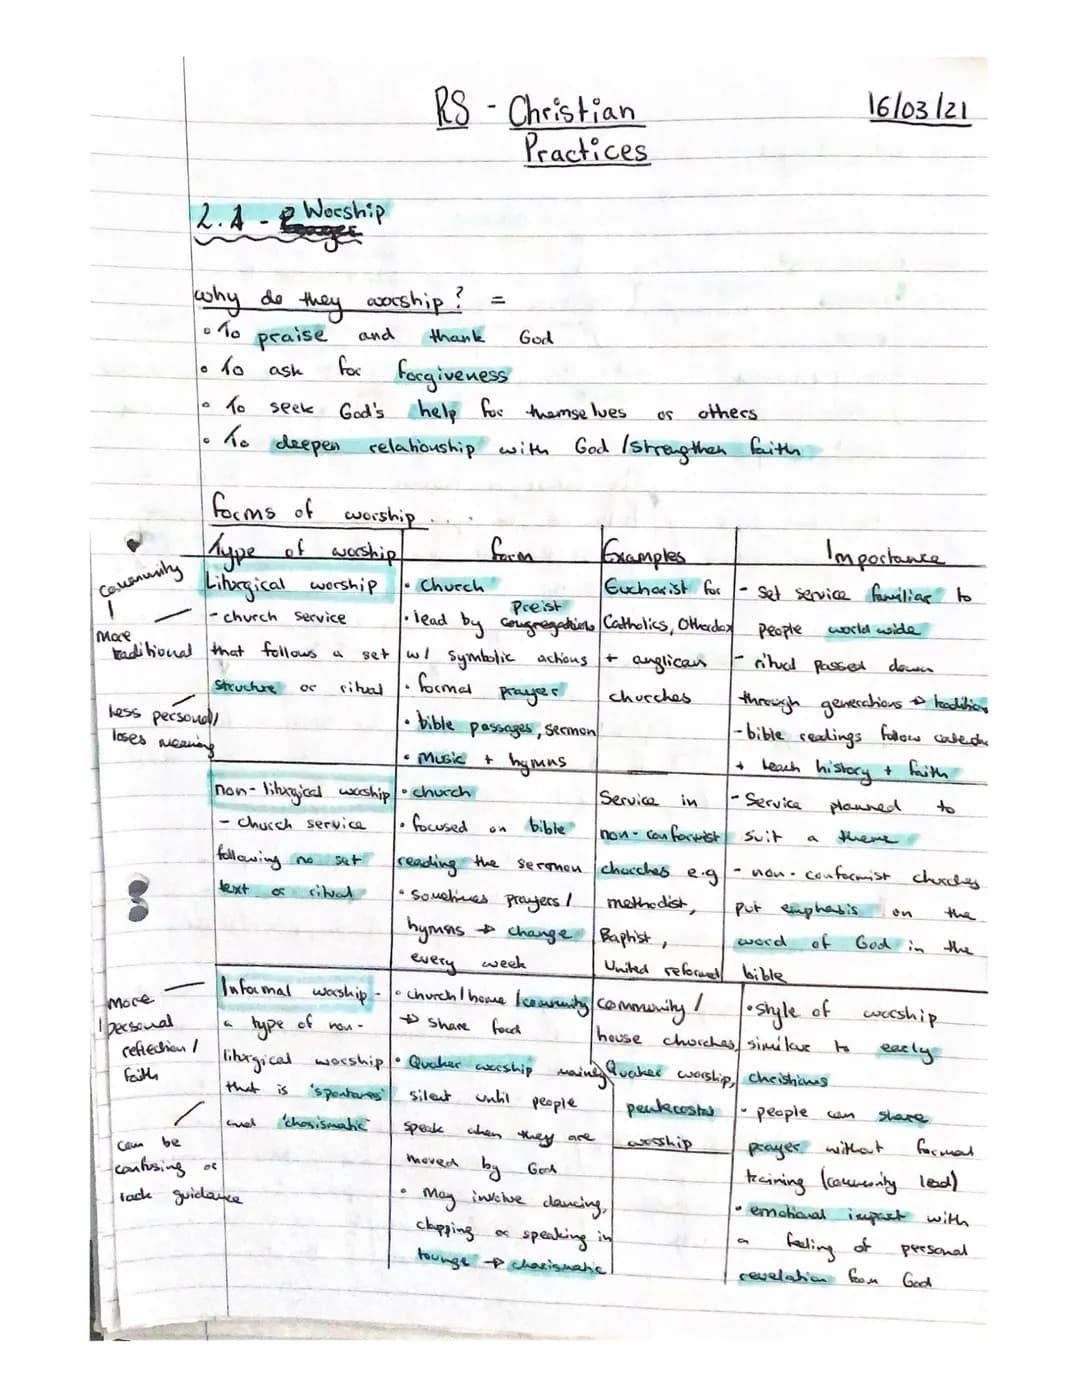 RS - Christian
Practices
16/03/21
2.A - Worship
why do they worship? =
• To praise and thank God
• To ask for forgiveness
• To seek God's help for themselves or others
• To deepen relationship with God / strengthen faith
forms of worship ....
Type of worship
Liturgical worship
- church service
that follows a set
structure or ritual
form
• Church
• lead by Preist congregation
w/ symbolic actions
• formal prayer
• bible passages, sermon
• Music + hymns
Examples
Eucharist for
Catholics,
+ anglican
churches
Importance
- Set service familiar to
people world wide
- ritual passed down
through generations → tradition
- bible readings follow
+ teach history + faith
community
More
traditional
Less personal/
loses meaning
non-liturgical worship
- church service
following no set
text or ritual
• church
• focused on bible
reading the sermon
• Sometimes prayers /
hymns → change
every week
Service in
non-conformist
churches e.g
methodist,
Baptist,
United reformed
- Service planned to
suit a theme
- non-conformist churches
put emphasis on the
word of God in the
bible
Informal worship -
a type of non-
liturgical worship
that is 'spontanes'
and 'charismatic
• church / home / community
→ share food
• Quaker worship mainly
silent until people
speak when they are
moved by God
• May involve dancing,
clapping or speaking in
tounge → charismatic
community /
house churches,
Quaker worship,
pentecostal
worship
• style of worship
similar to early
christians
• people can share
prayer without formal
training (community lead)
• emotional impact with
a feeling of personal
revelation from God
More
personal
reflection /
faith
can be
confusing or
lack guidance